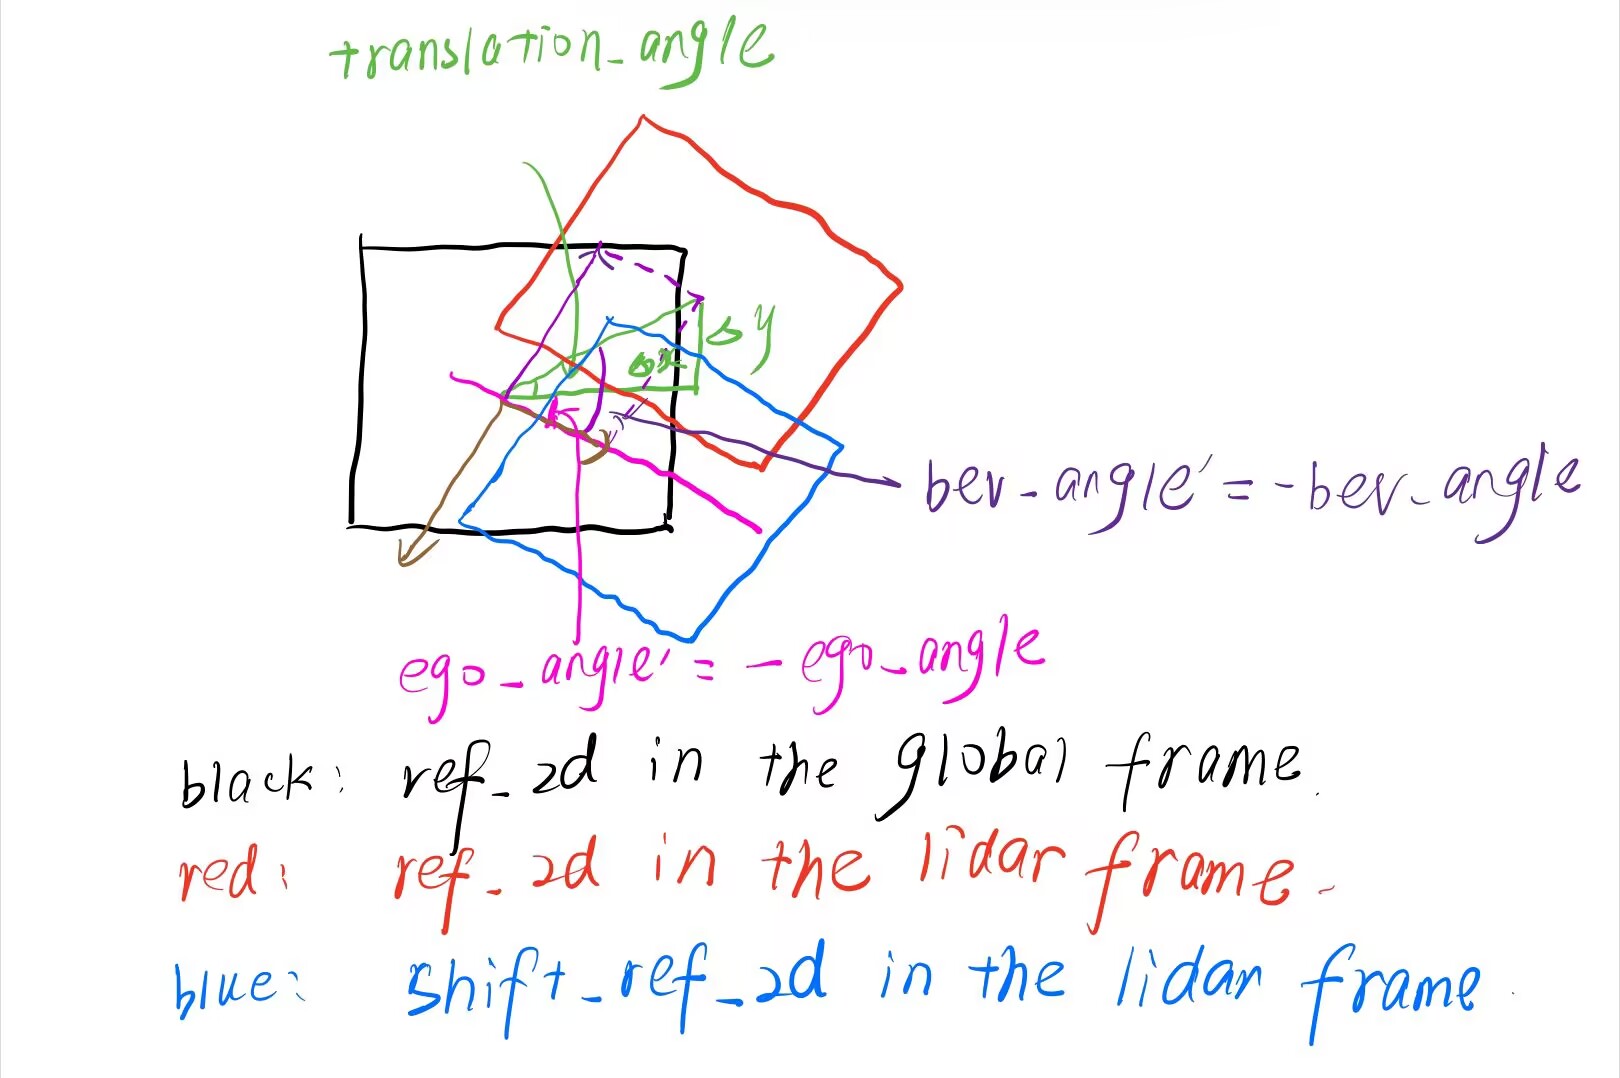 translation_angle
Δy
Δx
bev-angle' = -bev-angle
ego_angle' = - ego_angle
black: ref_2d in the global frame.
red: ref_2d in the lidar frame.
blue: shift_ref_2d in the lidar frame